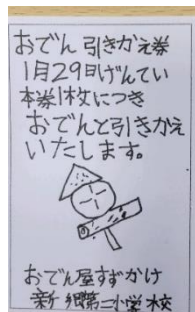 おでん 引きかえ券
1月29日げんてい
本券1枚につき
おでんと引きかえ
いたします。
おでん屋すずかけ
新郷第二小学校